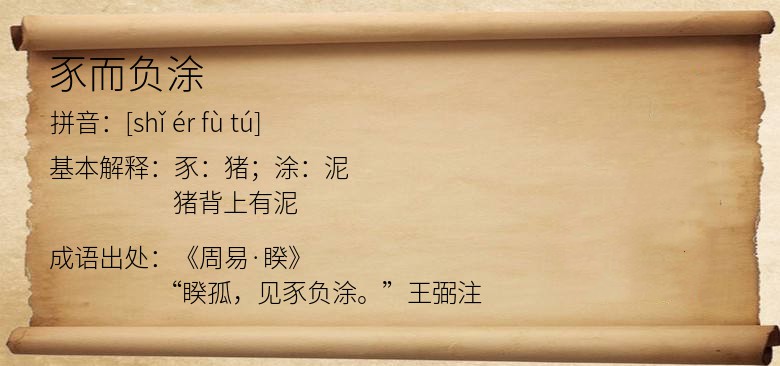 豕而负涂
拼音：[shǐ ér fù tú]
基本解释：豕：猪；涂：泥
猪背上有泥
成语出处：《周易·睽》
“睽孤，见豕负涂。”王弼注